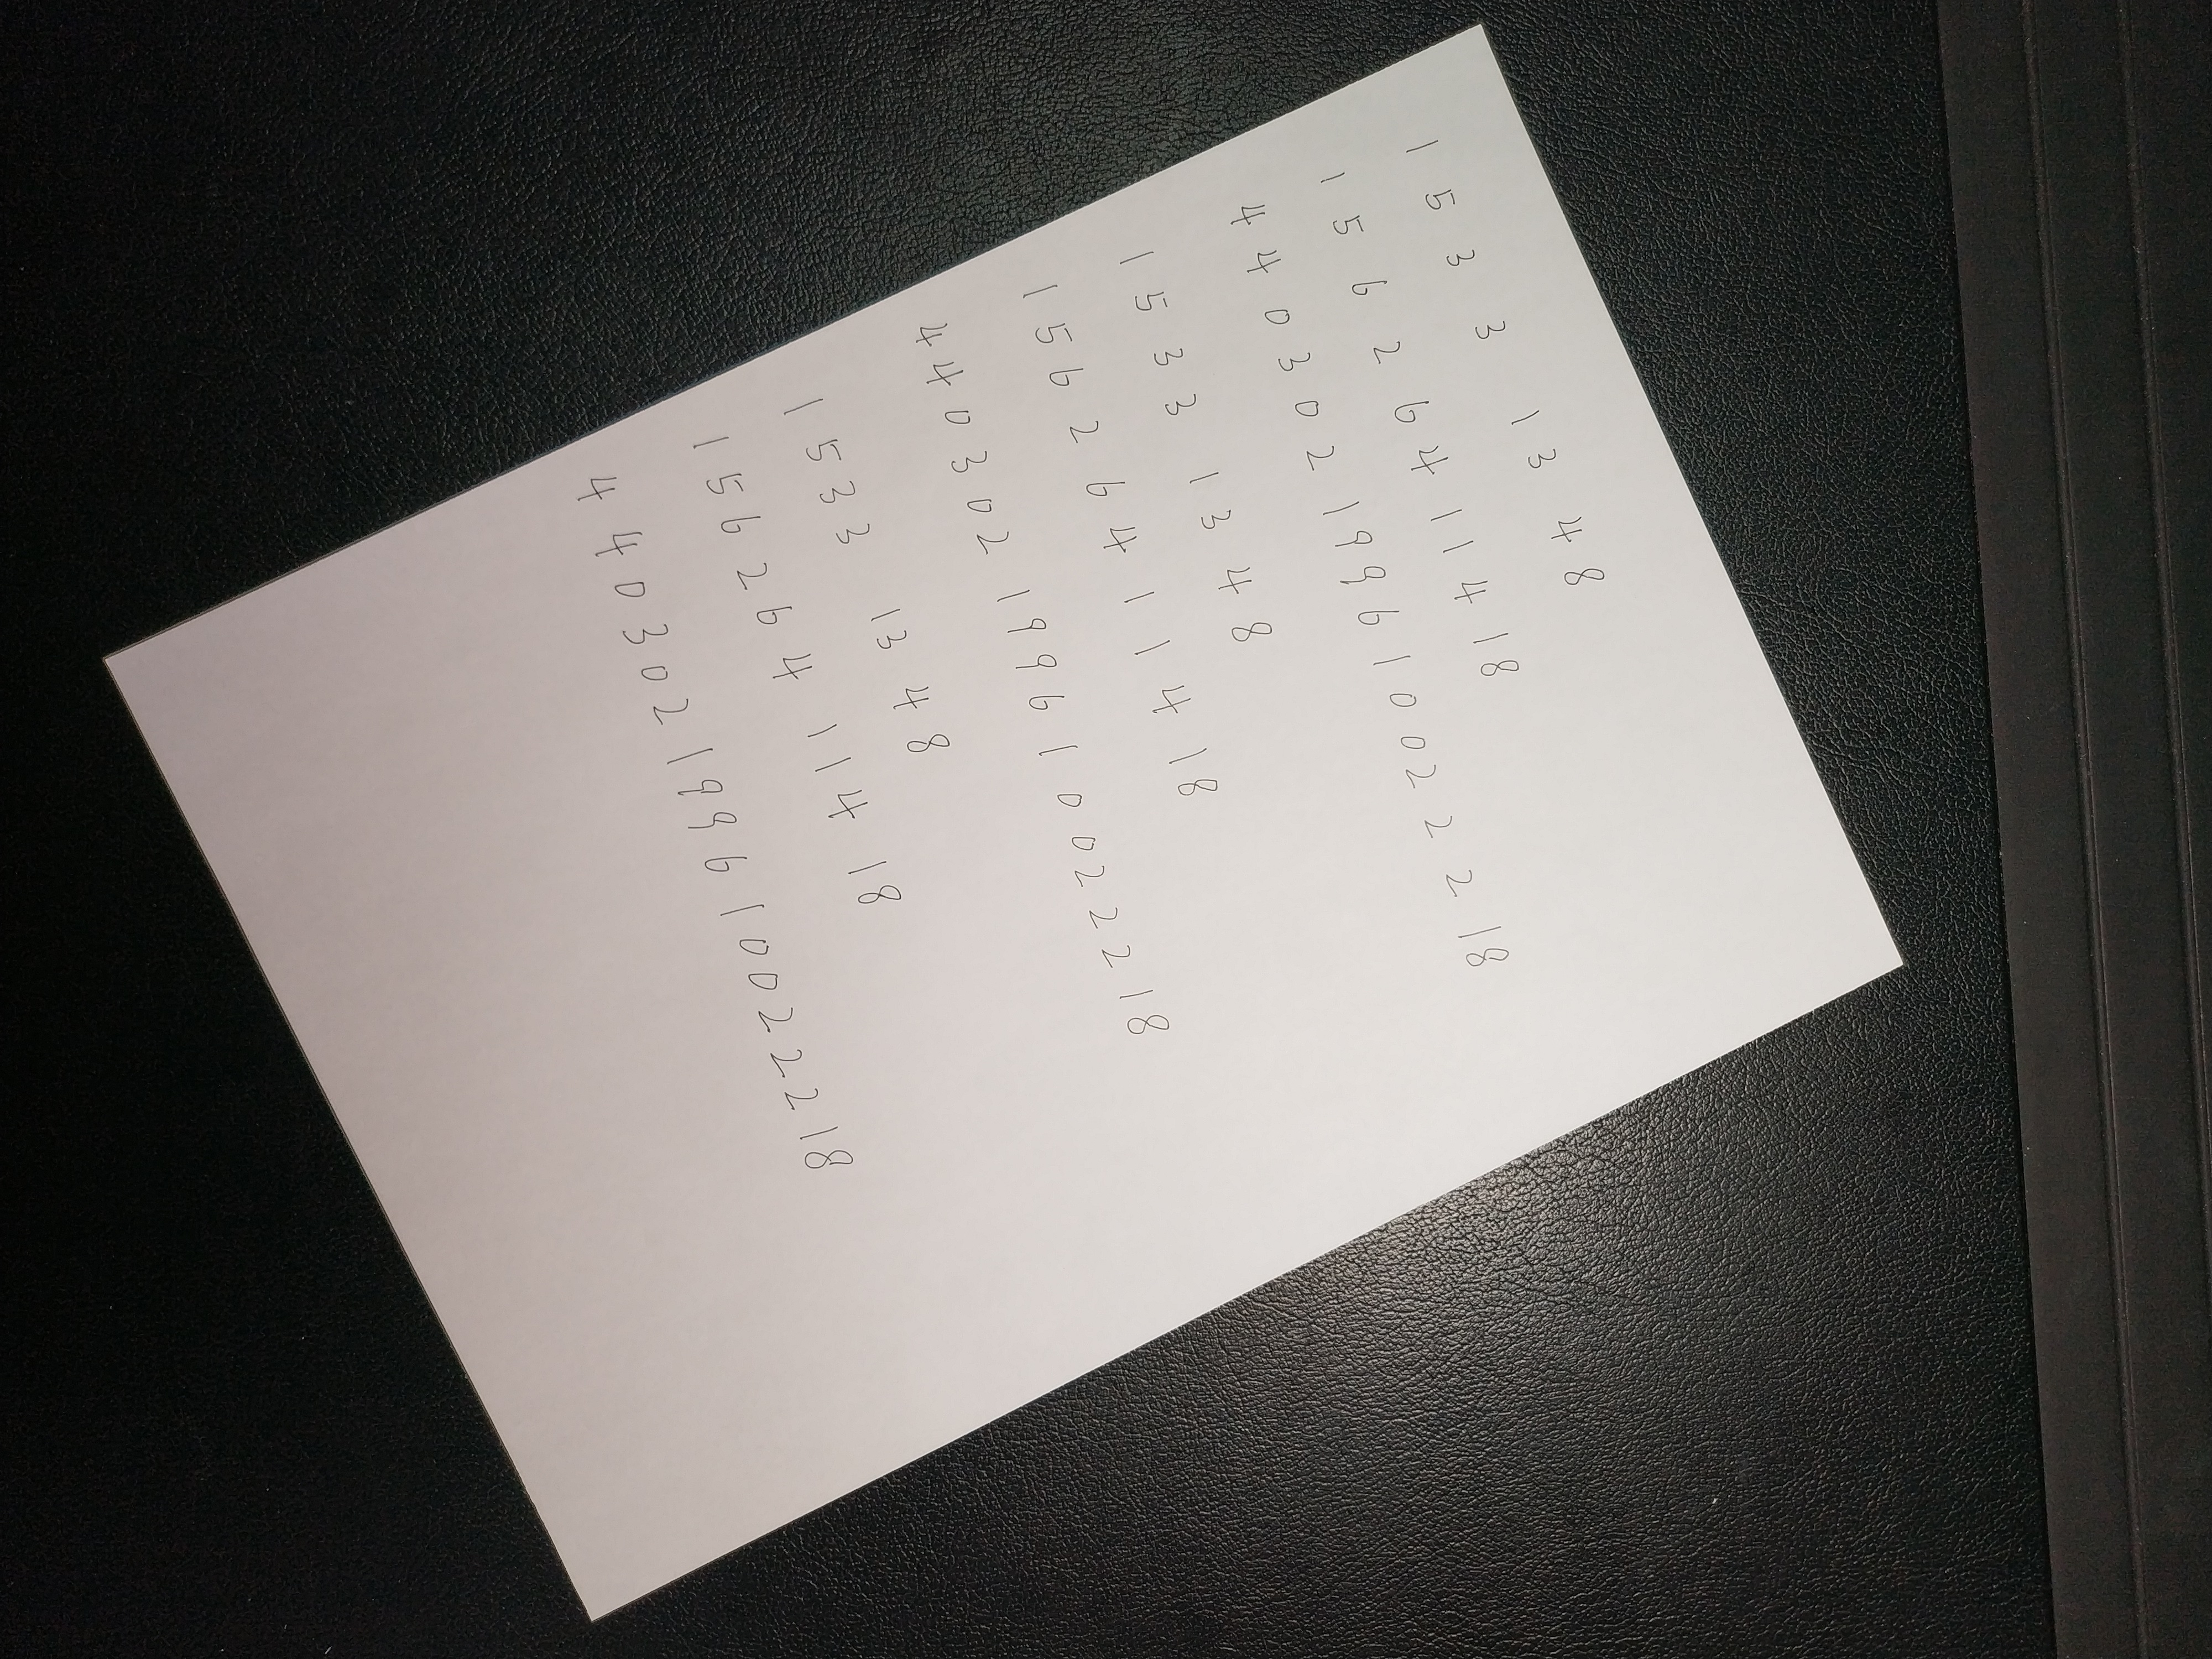 1 5 3 3 13 48
1 5 6 2 6 4 1 1 4 18
4 4 0 3 0 2 1 9 9 6 1 0 0 2 2 2 18
1 5 3 3 13 4 8
1 5 6 2 6 4 1 1 4 18
4 4 0 3 0 2 1 9 9 6 1 0 0 2 2 2 18
1 5 3 3 13 4 8
1 5 6 2 6 4 1 1 4 18
4 4 0 3 0 2 1 9 9 6 1 0 0 2 2 2 18